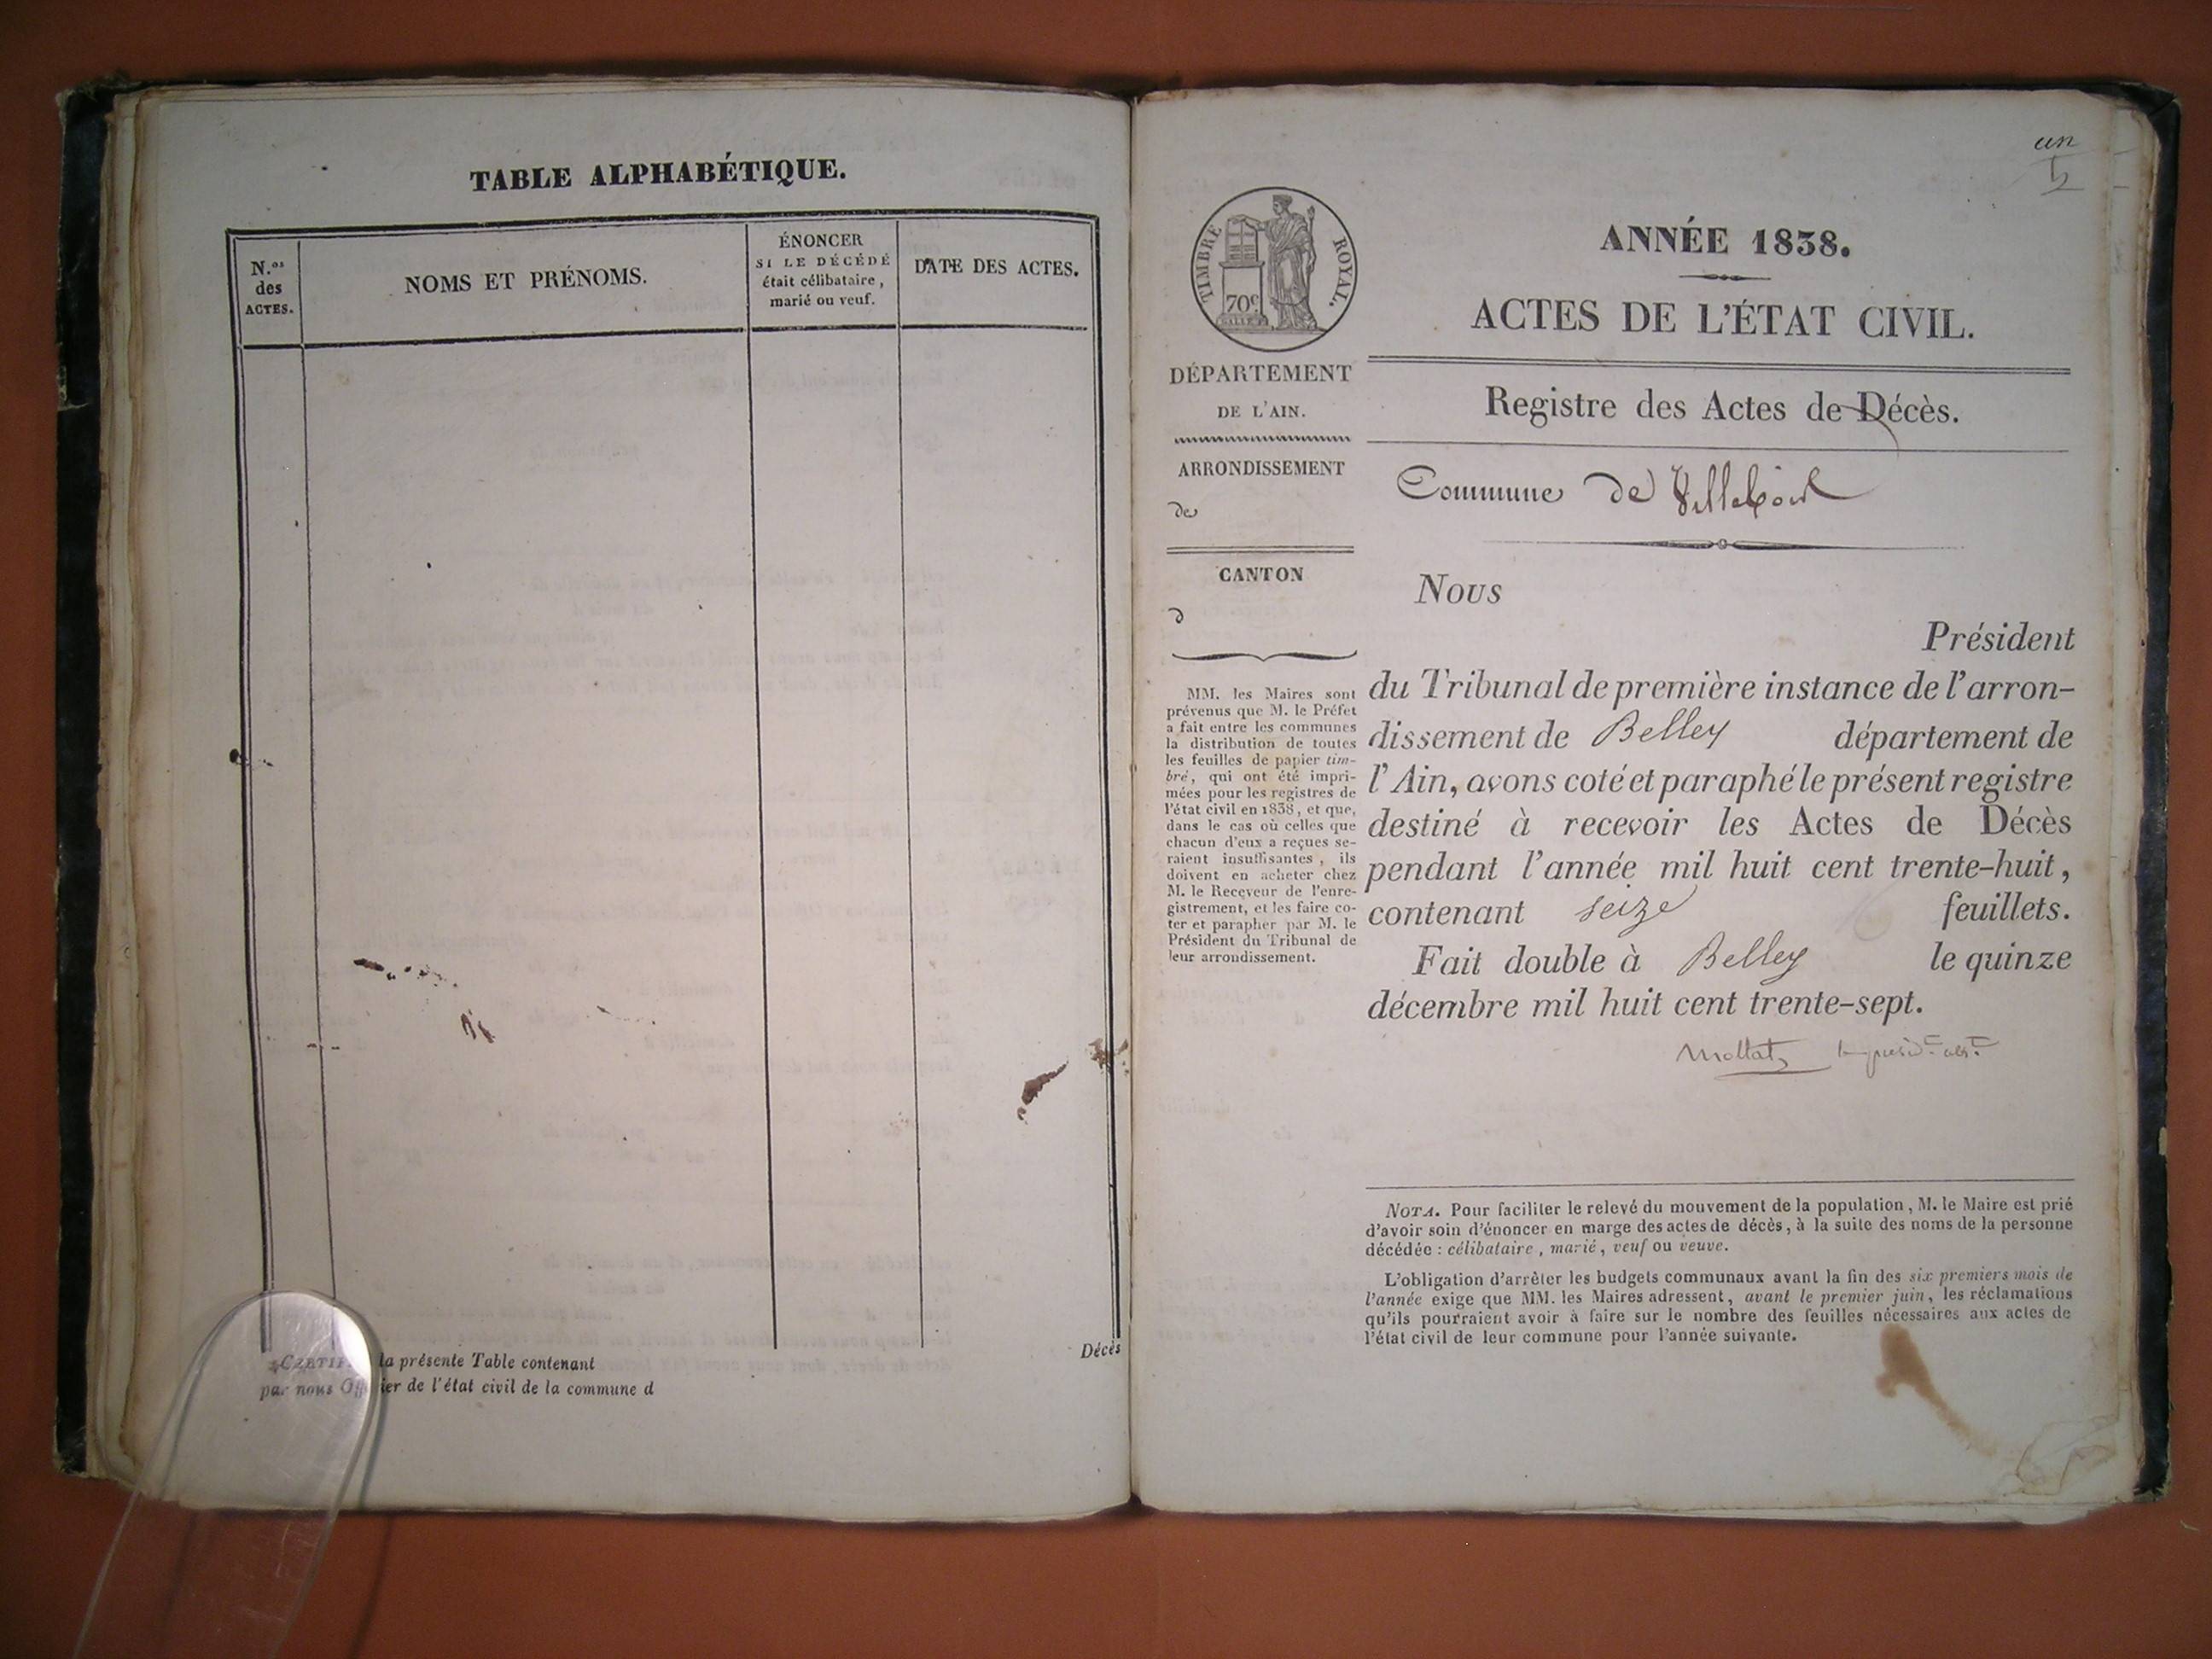 TABLE ALPHABÉTIQUE.
N.os
des
ACTES.
NOMS ET PRÉNOMS.
ÉNONCER
SI LE DÉCÉDÉ
était célibataire,
marié ou veuf.
DATE DES ACTES.
la présente Table contenant
par nous Officier de l'état civil de la commune d
Décès
un
TIMBRE ROYAL.
70c
DÉPARTEMENT
DE L'AIN.
ARRONDISSEMENT
de
CANTON
d
MM. les Maires sont
prévenus que M. le Préfet
a fait entre les communes
la distribution de toutes
les feuilles de papier tim-
bré, qui ont été impri-
mées pour les registres de
l'état civil en 1838, et que,
dans le cas où celles que
chacun d'eux a reçues se-
raient insuffisantes, ils
doivent en acheter chez
M. le Receveur de l'enre-
gistrement, et les faire co-
ter et parapher par M. le
Président du Tribunal de
leur arrondissement.
ANNÉE 1838.
ACTES DE L'ÉTAT CIVIL.
Registre des Actes de Décès.
Commune de Villebois
Nous
Président
du Tribunal de première instance de l'arron-
dissement de Belley département de
l'Ain, avons coté et paraphé le présent registre
destiné à recevoir les Actes de Décès
pendant l'année mil huit cent trente-huit,
contenant seize feuillets.
Fait double à Belley le quinze
décembre mil huit cent trente-sept.
NOTA. Pour faciliter le relevé du mouvement de la population, M. le Maire est prié
d'avoir soin d'énoncer en marge des actes de décès, à la suite des noms de la personne
décédée : célibataire, marié, veuf ou veuve.
L'obligation d'arrêter les budgets communaux avant la fin des six premiers mois de
l'année exige que MM. les Maires adressent, avant le premier juin, les réclamations
qu'ils pourraient avoir à faire sur le nombre des feuilles nécessaires aux actes de
l'état civil de leur commune pour l'année suivante.